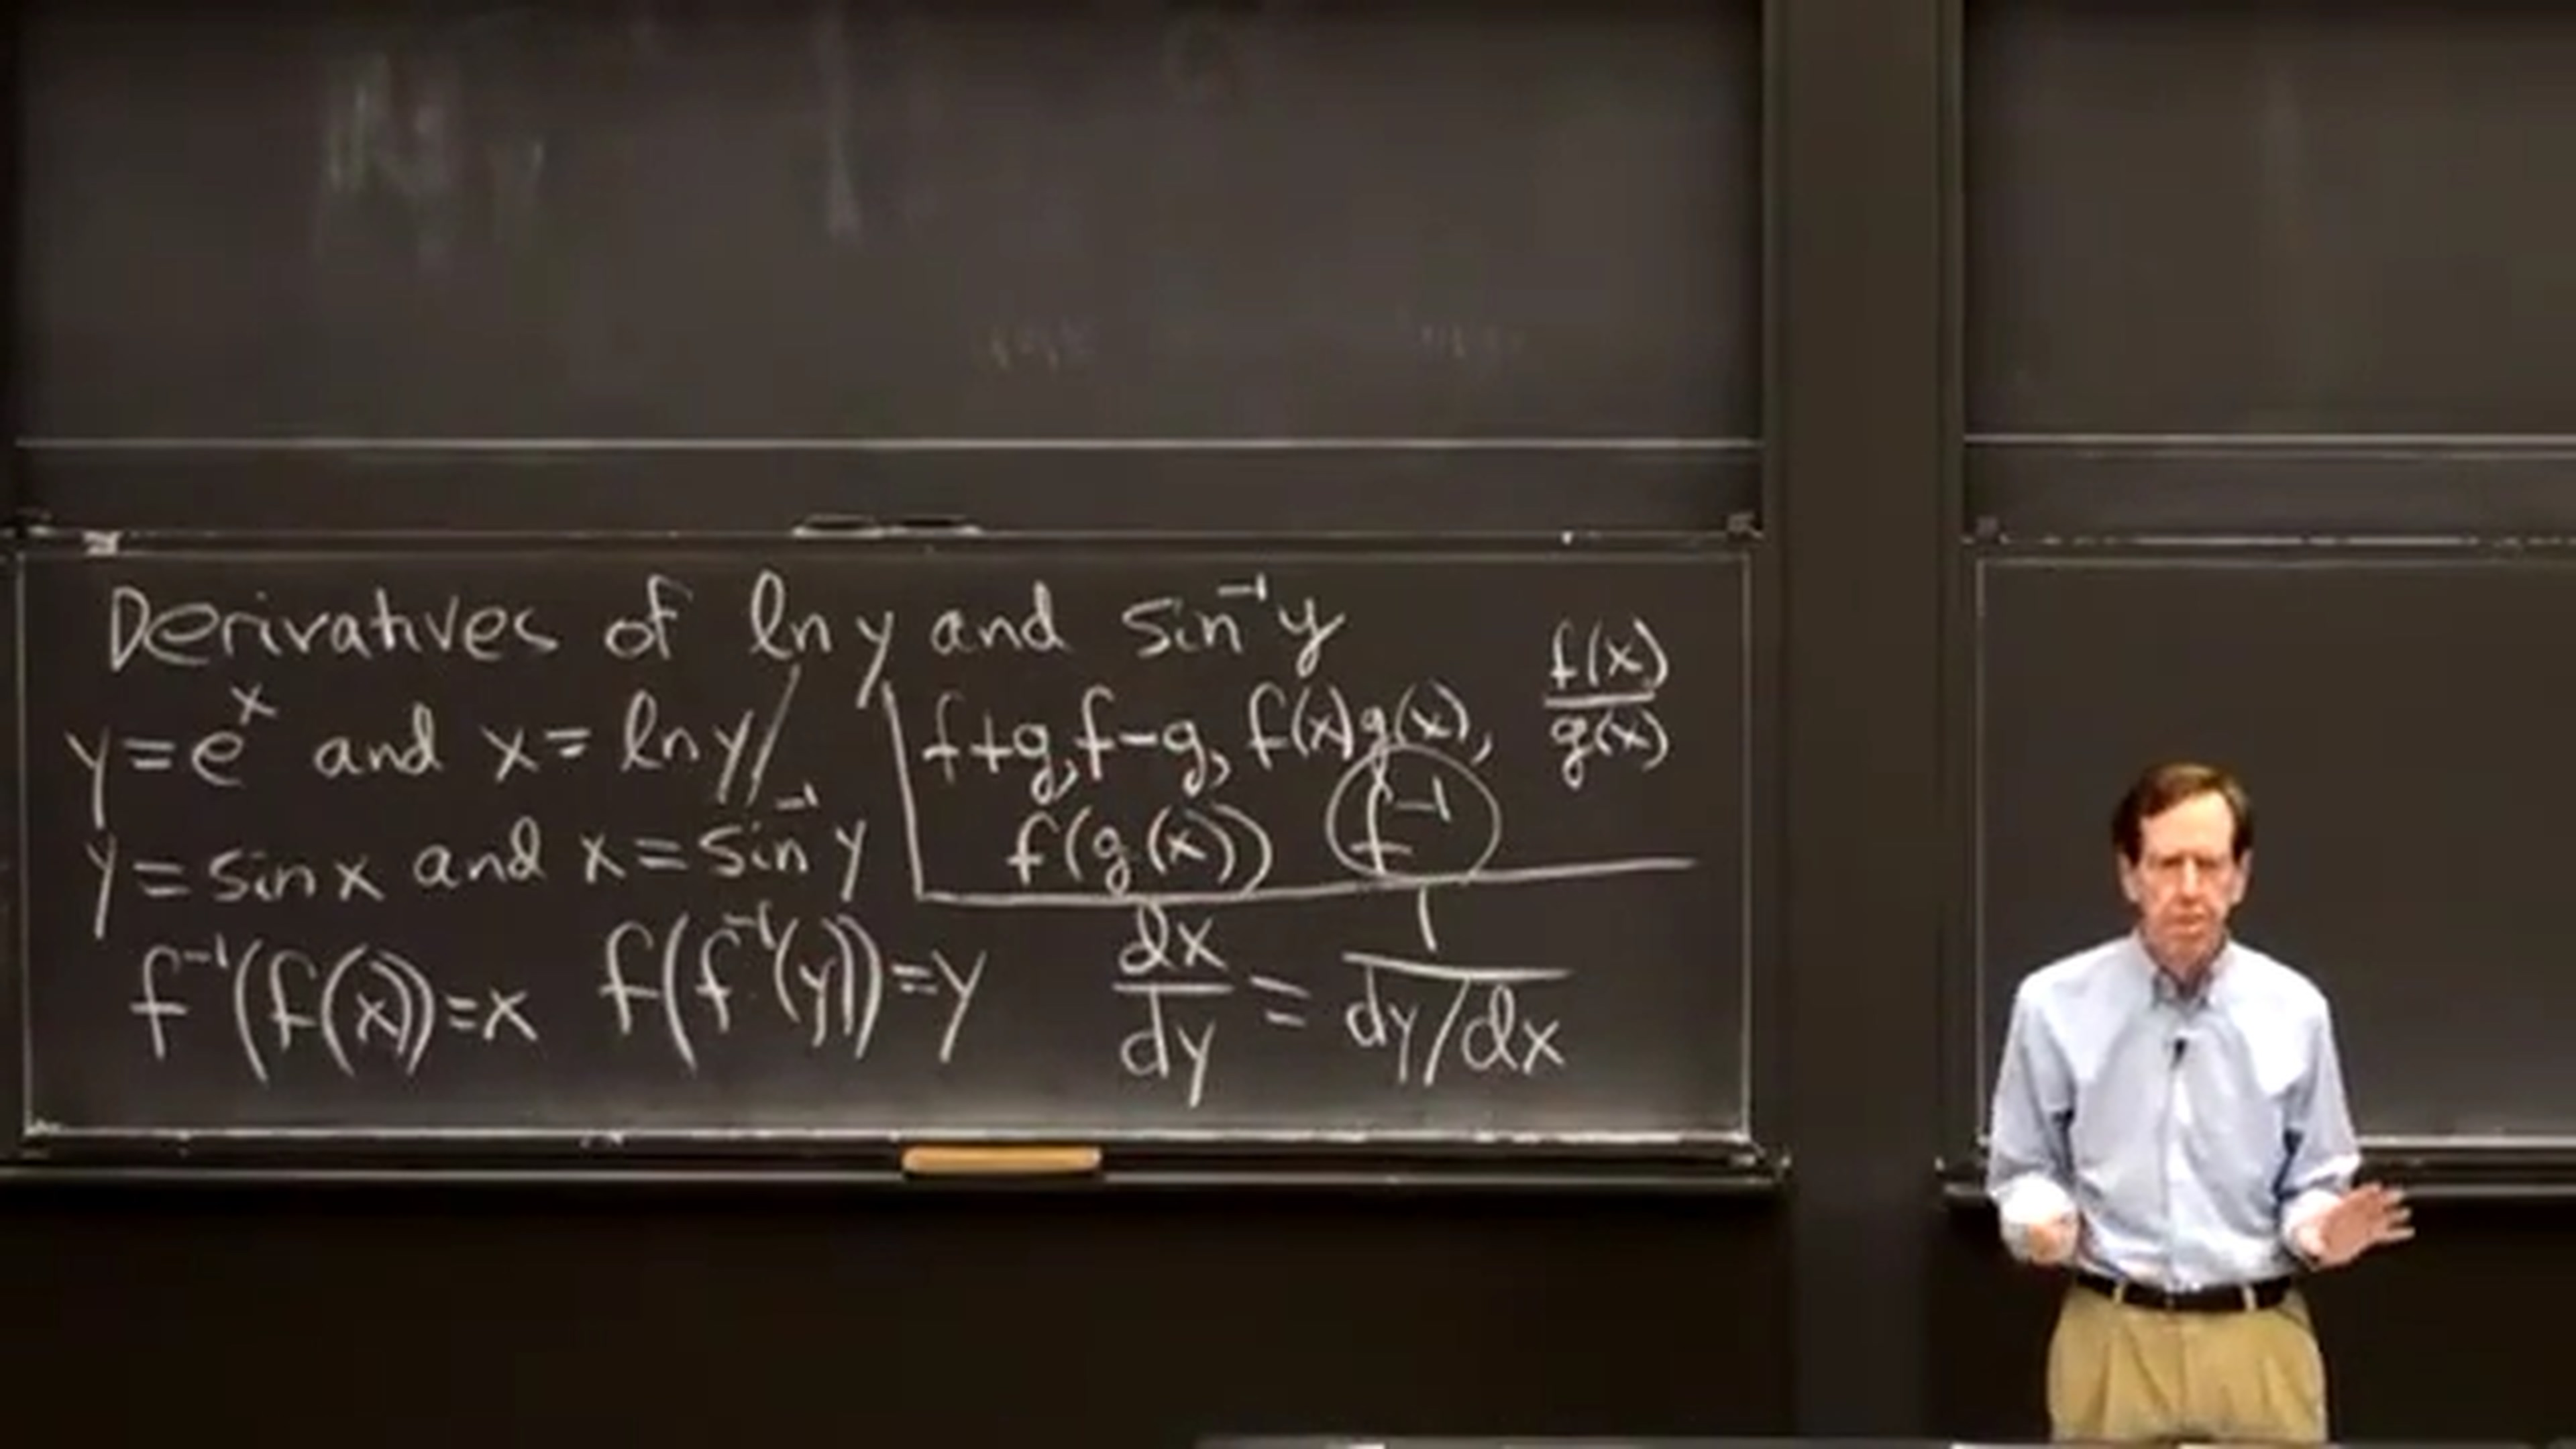 Derivatives of ln y and sin⁻¹ y
y = eˣ and x = ln y
y = sin x and x = sin⁻¹ y
f+g, f-g, f(x)g(x), f(x)/g(x)
f(g(x)) f⁻¹
f⁻¹(f(x)) = x f(f⁻¹(y)) = y dx/dy = 1/(dy/dx)